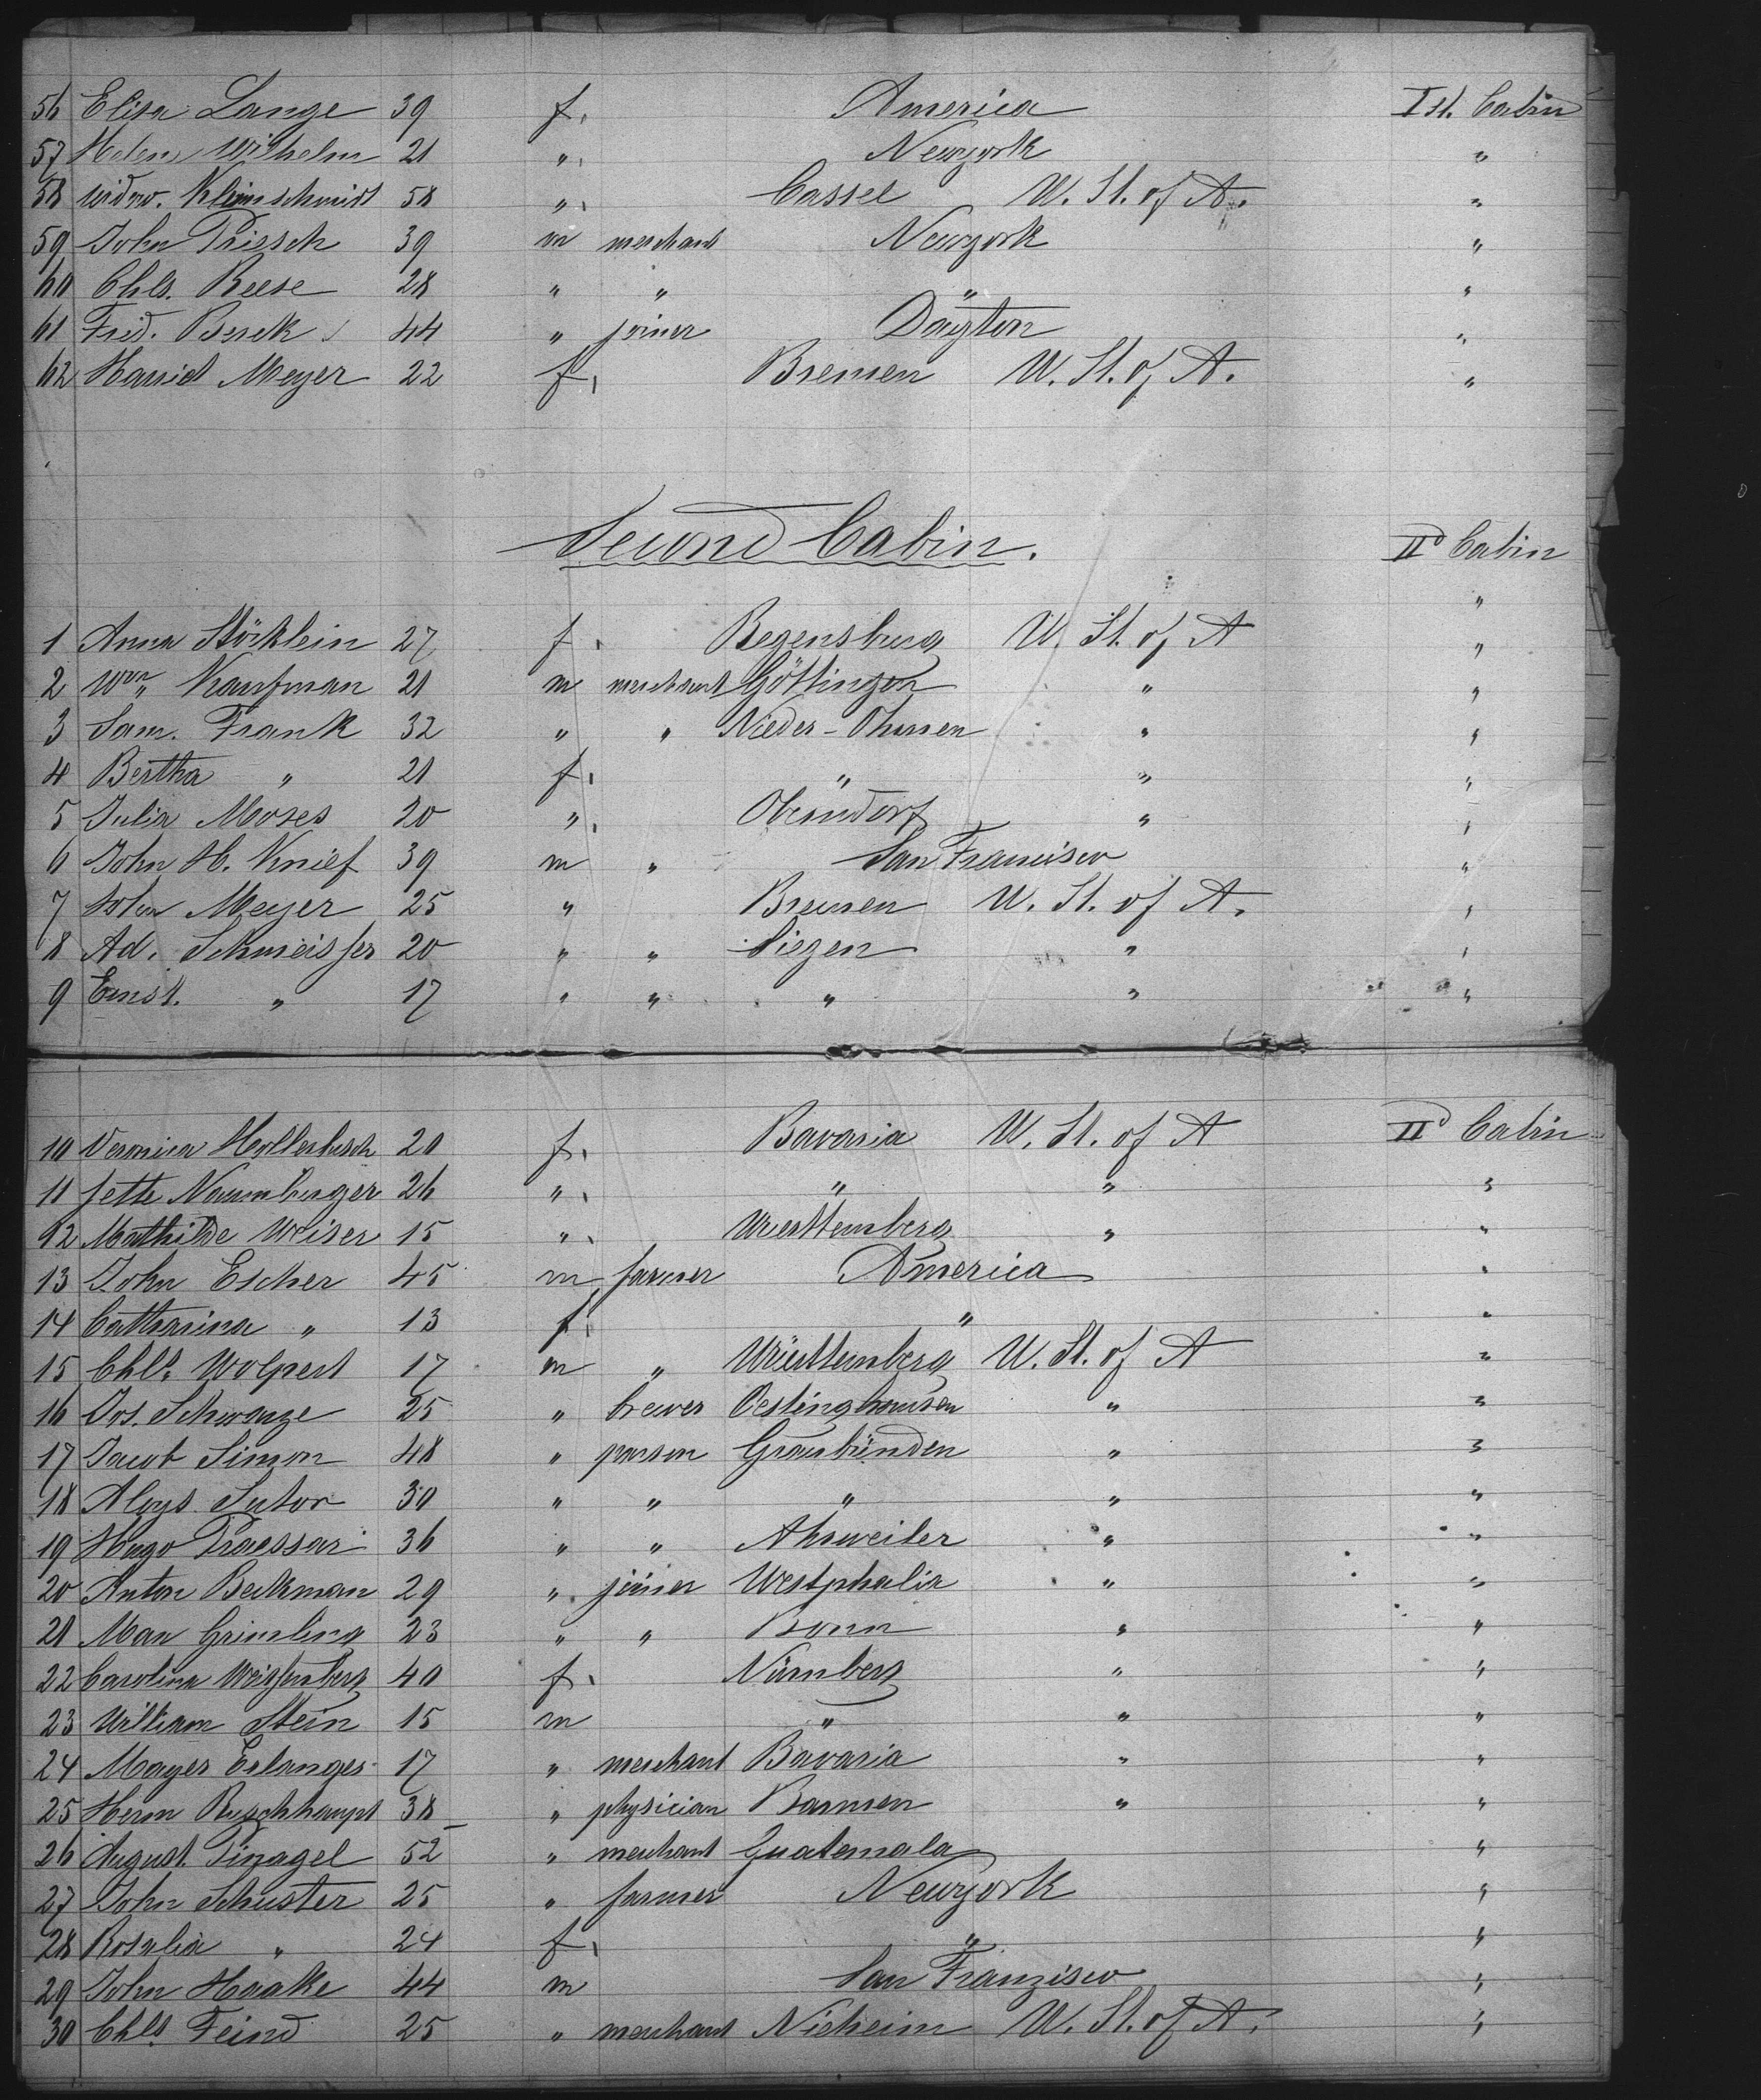 56 Elisa Lange 39 f. America Ist. Cabin
57 Helene Wilhelm 21 „ Newyork „
58 widow. Kleinschmidt 58 „ Cassel U. St. of A. „
59 John Prissch 39 m merchant Newyork „
60 Chls. Reese 28 „ „ „ „
61 Frid. Busck 44 „ joiner Dayton „
62 Harriet Meyer 22 f. Bremen U. St. of A. „
Second Cabin. IId Cabin
„
1 Anna Störklein 27 f. Regensburg U. St. of A „
2 Wm Kaufman 21 m merchant Göttingen „ „
3 Sam. Frank 32 „ „ Nieder-Ohmen „ „
4 Bertha „ 21 f. „ „ „
5 Julia Moses 20 „ Oberndorf „ „
6 John H. Knief 39 m „ San Francisco „
7 John Meyer 25 „ Bremen U. St. of A. „
8 Ad. Schmeisser 20 „ „ Siegen „ „
9 Ernst. „ 17 „ „ „ „ „
10 Veronica Hollerbusch 20 f. Bavaria U. St. of A IId Cabin
11 Jette Naumburger 26 „ „ „ „
12 Mathilde Weiser 15 „ Wuerttemberg „ „
13 John Escher 45 m farmer America „
14 Catharina „ 13 f. „ „
15 Chls. Wolpert 17 m „ Württemberg U. St. of A „
16 Jos. Schwarze 25 „ brewer Oestinghausen „ „
17 Jacob Simon 48 „ parson Graubünden „ „
18 Aloys Sutor 30 „ „ „ „ „
19 Hugo Praessar 36 „ „ Ahrweiler „ „
20 Anton Beckman 29 „ joiner Westphalia „ „
21 Max Grimling 23 „ „ Bonn „ „
22 Carolina Weissenberg 40 f. Nürnberg „ „
23 William Stein 15 m „ „ „
24 Mayer Erlanger 17 „ merchant Bavaria „ „
25 Herm Ruschhaupt 38 „ physician Barmen „ „
26 August Pinagel 52 „ merchant Guatemala „
27 John Schuster 25 „ farmer Newyork „
28 Rosalia „ 24 f. „ „
29 John Haake 44 m San Franzisco „
30 Chls. Feind 25 „ merchant Nieheim U. St. of A. „